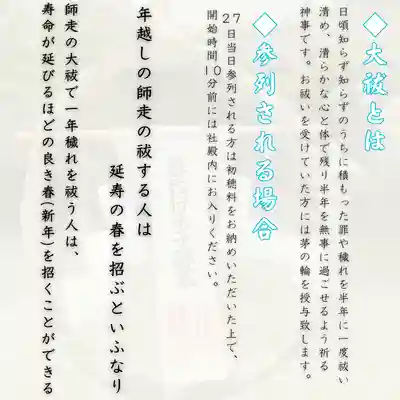 ◆大祓とは
日頃知らず知らずのうちに積もった罪や穢れを半年に一度祓い
清め、清らかな心と体で残り半年を無事に過ごせるよう祈る
神事です。お祓いを受けていた方には茅の輪を授与致します。
◆参列される場合
27日当日参列される方は初穂料をお納めいただいた上で、
開始時間10分前には社殿内にお入りください。
年越しの師走の祓する人は
延寿の春を招ぶといふなり
師走の大祓で一年穢れを祓う人は、
寿命が延びるほどの良き春(新年)を招くことができる